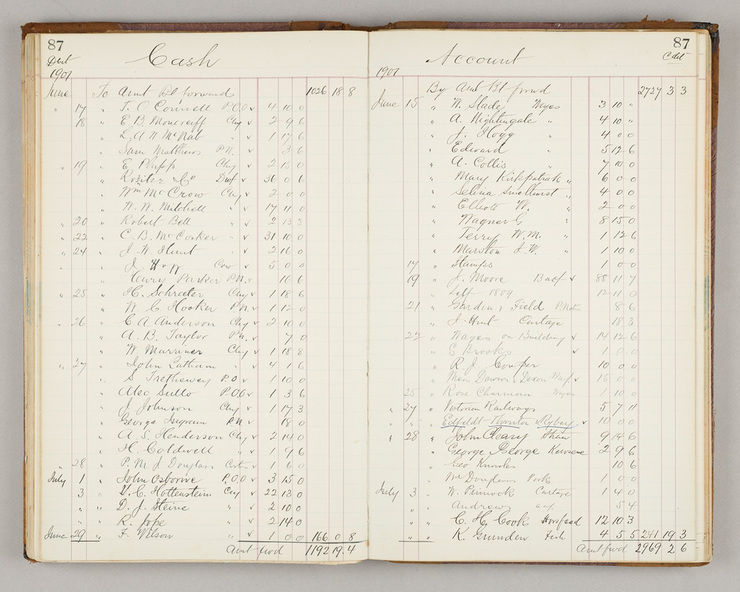 87
Cash
1901
June To Amt Bt forward 1026 18 8
17 " T. O Connell P.O.O 4 10 0
18 " E B Moncreiff Chq 2 9 6
" 1 17 6
" Sam Matthews P.N. 3 6
19 " E Phipp Chq 2 15 0
" 36 0 6
" Wm McCrow Chq 2 0 0
" W. W. Mitchell " 17 11 0
20 " Robert Bell "
22 " C. B. McCorker " 31 10 0
24 " J. W. Hunt " 2 10 0
" 5 0 0
" Parker P.N. 10 6
25 " H. Schroeter Chq 1 18 6
" W. C. Hooker P.N. 1 12 0
26 " C A Anderson Chq 2 10 0
" A. B. Taylor P.N. 7 0
" W. Marriner Chq 1 18 8
27 " John Latham " 4 1 6
" S Tretheway P.O 1 10 0
" Alec P.O.O 1 3 6
" J Johnson Chq 1 17 3
" George Ingram P.N 18 0
" A. S. Henderson Chq 2 14 0
" H. Coldwell " 1 9 6
28 " P. M. J Douglas 1 6 0
July 1 " John Osborne P.O.O 3 15 0
3 " D. C. Hottenstein Chq 22 13 0
" " D. J. " 2 10 0
" " R. Pope " 2 14 0
June 29 " F. Wilson " 1 0 0 166 0 8
Amt fwd 1192 19 4
87
Account
1901
By Amt Bt forwd 2727 3 3
June 15 " W. Slade Wages 3 10 "
" A. Nightingale " 4 10 "
" J. Hogg " 4 0 0
" Edward " 5 12 6
" A. Collis " 7 10 0
" Mary Kirkpatrick " 6 0 0
" Selina Smallhurst " 4 0 0
" Elliott W. " 2 0 0
" Wagner G " 8 15 0
" Terry W. M. " 1 12 6
" Marston J. W. " 1 10 0
17 " Stamps 1 0 0
19 " J. Moore 88 11 7
" 1809
21 " Garden & Field 8 6
" J Hunt Cartage 18 3
22 " Wages on Building 14 12 6
" E Brooks 1 0 0
" R. J. Cowper 10 0 0
" 15 0 0
25 " Rose Charman Wages 1 10 0
27 " Victorian Railways 5 7 11
" Edfeldt Thornton 10 0 0
28 " John Cleary 9 14 6
" George George 2 9 6
" Geo 10 6
" Wm Douglas Pork 1 0 0
July 3 " W. Pennock Cartage 1 4 0
" Andrews 5 4
" C. H. Cook 12 10 3
" K. Grunden Fish 4 5 5 241 19 3
Amt fwd 2969 2 6